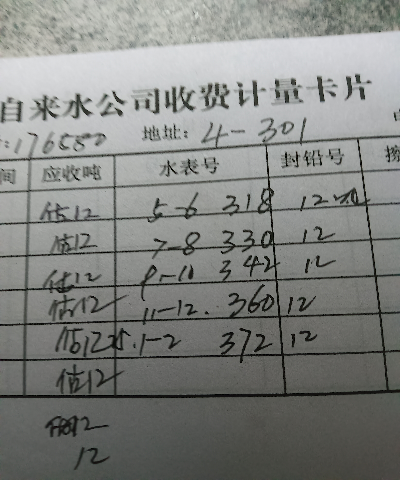 自来水公司收费计量卡片
:176580 地址: 4-301
间 应收吨 水表号 封铅号
估12 5-6 318 12
估12 7-8 330 12
估12 9-10 342 12
估12 11-12. 360 12
估12 25.1-2 372 12
估12
12
12